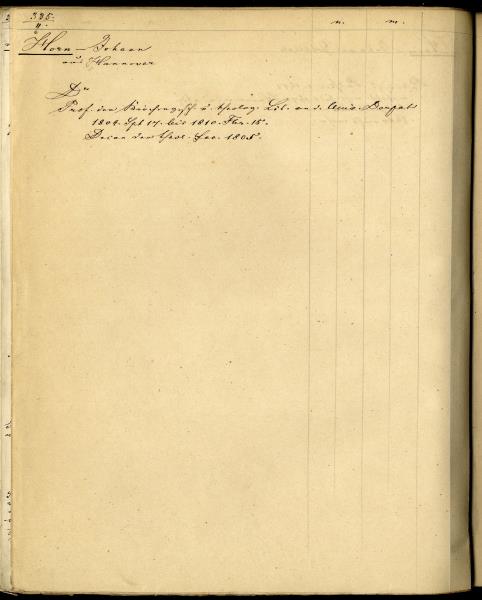 385.
n. m.
Horn - Johann
aus Hannover
Dr
Prof. der Kirchengesch u. theolog. Lit. an d. Univ. Dorpat
1804. Spt 17. bis 1810. Fbr. 15.
Decan der theol. Fac. 1805.